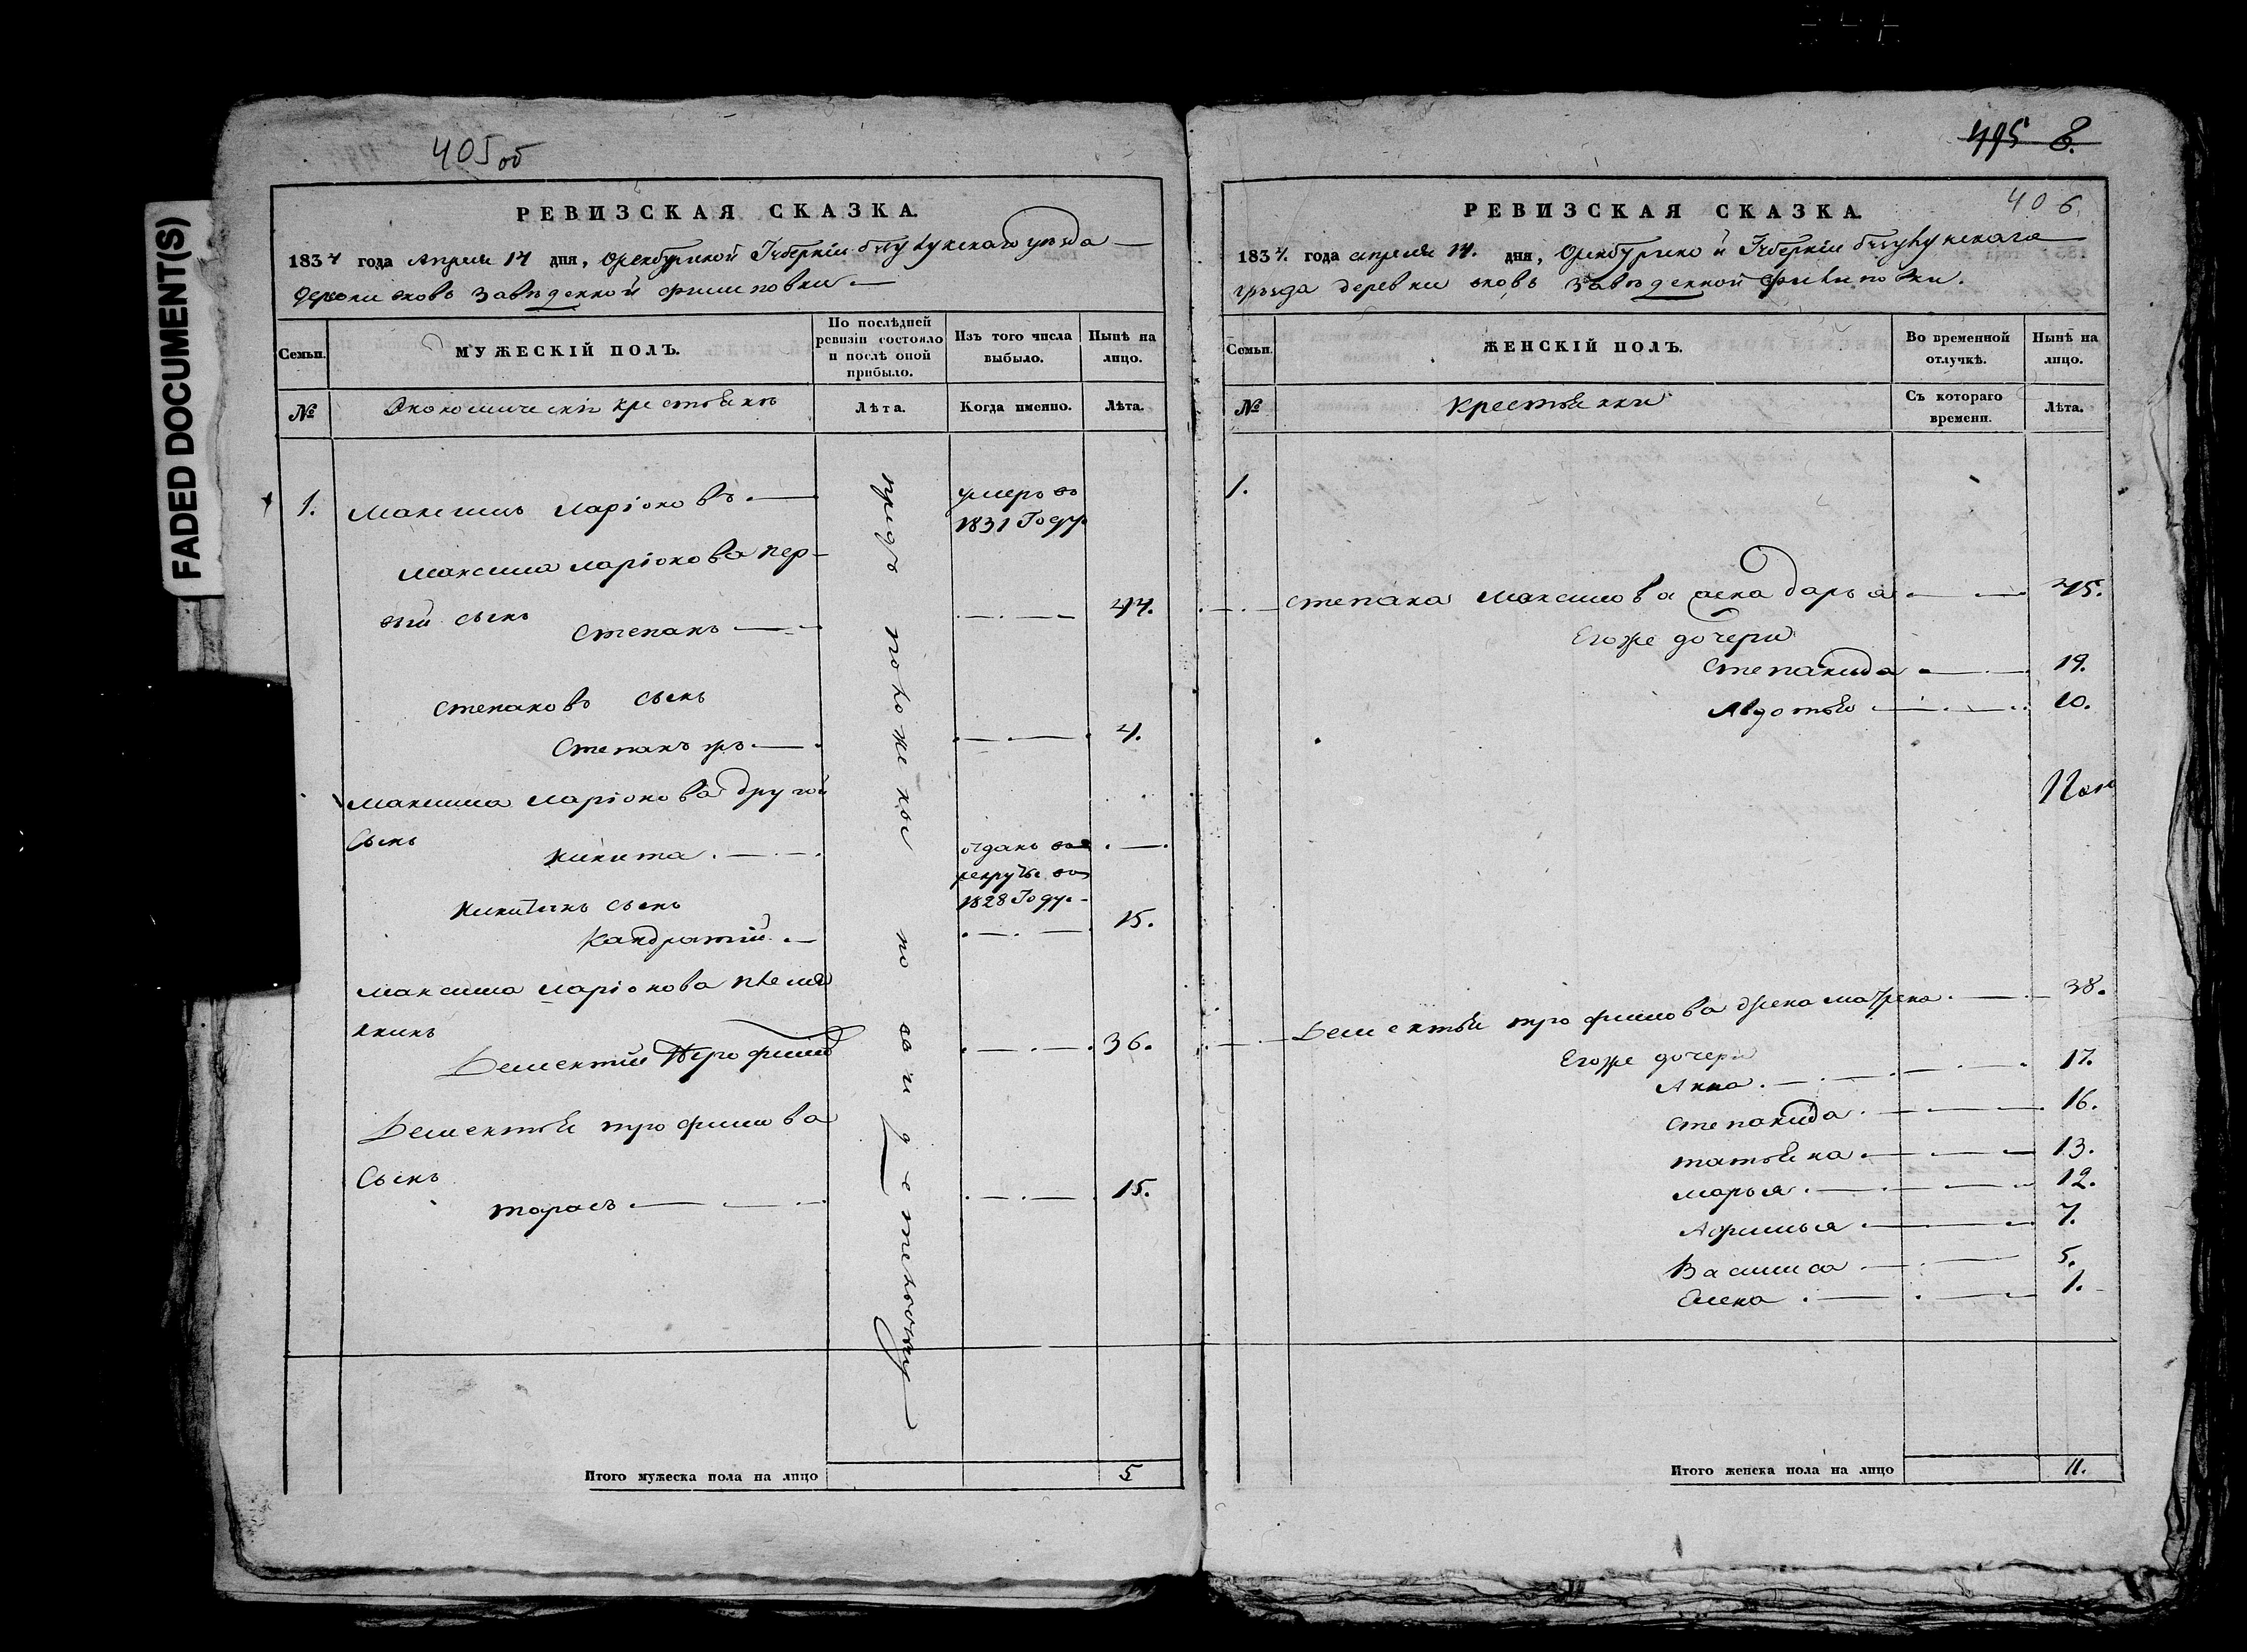 FADED DOCUMENT(S)
405 об
РЕВИЗСКАЯ СКАЗКА.
1834 года Апреля 14 дня, Оренбургской Губернiи бузулукскаго уезда
деревни вновь Заведенной филиповки
Семьи.
МУЖЕСКIЙ ПОЛЪ.
По послѣдней ревизiи состояло и послѣ оной прибыло.
Изъ того числа выбыло.
Нынѣ на лицо.
№
Экономическiе крестьяне
Лѣта.
Когда именно.
Лѣта.
1. Максимъ ларiоновъ
умеръ въ
1831 Году
Максима ларiонова пер-
вый сынъ
Степанъ 44.
Степановъ сынъ
Степанъ жъ 4.
Максима ларiонова другой
Сынъ
Никита
отданъ въ
рекруты въ
1828 Году
Никитинъ сынъ
Кандратiй 15.
Максима ларiонова племя
нникъ
Дементiй Трофимов 36.
Дементья трофимова
Сынъ
тарасъ 15.
Итого мужеска пола на лицо 5
495 8.
406.
РЕВИЗСКАЯ СКАЗКА.
1834. года апреля 14. дня, Оренбургской Губернiи бузулукскаго
уезда деревни вновь Заведенной филиповки.
Семьи.
ЖЕНСКIЙ ПОЛЪ.
Во временной отлучкѣ.
Нынѣ на лицо.
№
крестьянки
Съ котораго времени.
Лѣта.
1.
Степана Максимова жена дарья 45.
Егоже дочери
Степанида 19.
Авдотья 10.
Дементья трофимова жена матрена 38.
Егоже дочери
Анна 17.
Степанида 16.
татьяна 13.
марья 12.
Афимья 7.
Василиса 5.
Елена 1.
Итого женска пола на лицо 11.